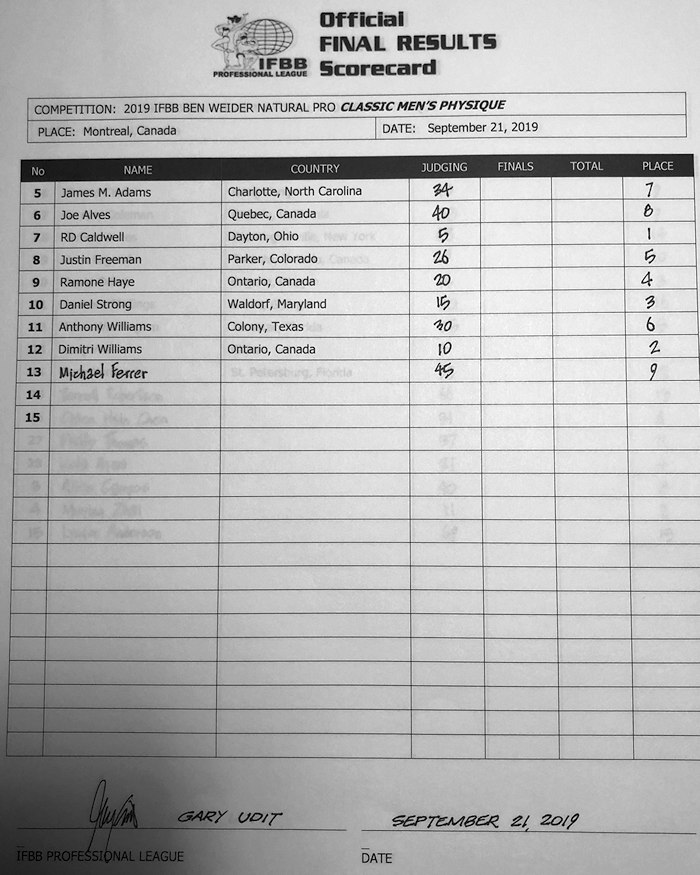 IFBB
PROFESSIONAL LEAGUE
Official
FINAL RESULTS
Scorecard
COMPETITION: 2019 IFBB BEN WEIDER NATURAL PRO CLASSIC MEN'S PHYSIQUE
PLACE: Montreal, Canada DATE: September 21, 2019
No NAME COUNTRY JUDGING FINALS TOTAL PLACE
5 James M. Adams Charlotte, North Carolina 34 7
6 Joe Alves Quebec, Canada 40 8
7 RD Caldwell Dayton, Ohio 5 1
8 Justin Freeman Parker, Colorado 26 5
9 Ramone Haye Ontario, Canada 20 4
10 Daniel Strong Waldorf, Maryland 15 3
11 Anthony Williams Colony, Texas 30 6
12 Dimitri Williams Ontario, Canada 10 2
13 Michael Ferrer 45 9
14
15
GARY UDIT SEPTEMBER 21, 2019
IFBB PROFESSIONAL LEAGUE DATE